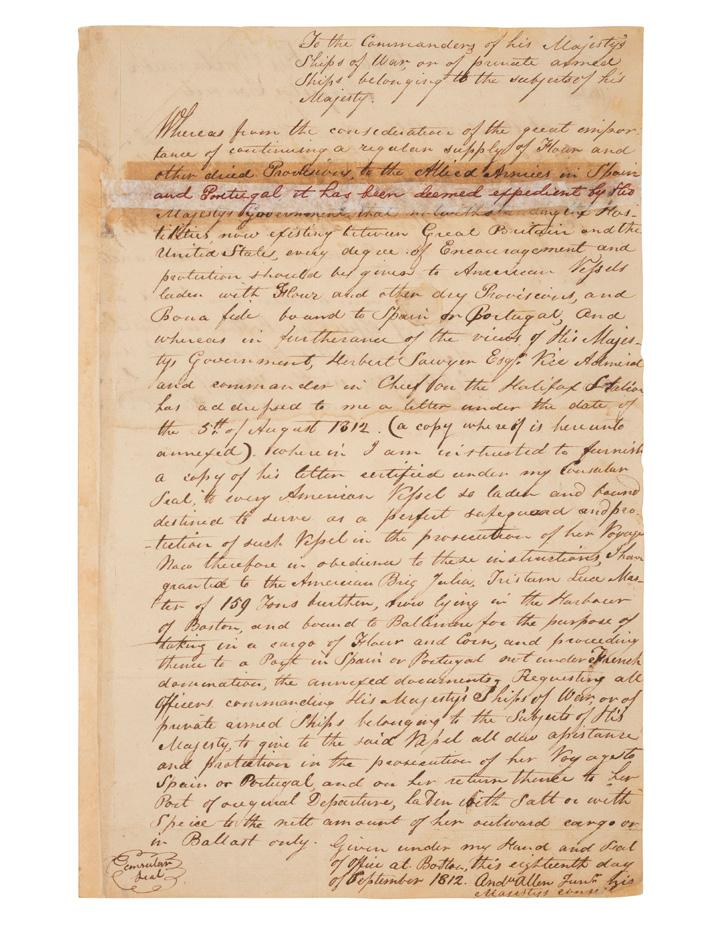 To the Commanders of his Majesty's
Ships of War, or of private armed
Ships belonging to the subjects of his
Majesty.
Whereas from the consideration of the great impor-
tance of continuing a regular supply of Flour and
other dried Provisions, to the Allied Armies in Spain
and Portugal it has been deemed expedient by His
Majestys Government, that notwithstanding the Hos-
tilities now existing between Great Britain and the
United States, every degree of Encouragement and
protection should be given to American Vessels
laden with Flour and other dry Provisions, and
Bona fide bound to Spain or Portugal, and
whereas in furtherance of the views of His Majes-
tys Government, Herbert Sawyer Esqr. Vice Admiral
and commander in Chief on the Halifax Station
has addressed to me a letter under the date of
the 5th of August 1812. (a copy whereof is hereunto
annexed). wherein I am instructed to furnish
a copy of his letter certified under my Consular
Seal, to every American Vessel so laden and bound
destined to serve as a perfect safeguard and pro-
-tection of such Vessel in the prosecution of her Voyage
Now therefore in obedience to these instructions, I have
granted to the American Brig Julia, Tristram Luce Mas-
ter of 159 Tons burthen, now lying in the Harbour
of Boston, and bound to Baltimore for the purpose of
taking in a cargo of Flour and Corn, and proceeding
thence to a Port in Spain or Portugal not under French
domination, the annexed documents, Requesting all
Officers commanding His Majesty's Ships of War, or of
private armed Ships belonging to the Subjects of His
Majesty, to give to the said Vessel all due assistance
and protection in the prosecution of her Voyage to
Spain or Portugal, and on her return thence to her
Port of original Departure, laden with Salt or with
Specie to the nett amount of her outward cargo or
in Ballast only. Given under my Hand and Seal
of Office at Boston, this eighteenth day
of September 1812. Andw Allen Junr. his
Majestys consul
Consular
Seal